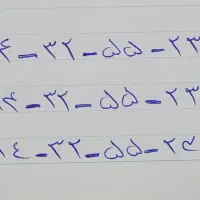 ۴ - ۳۲ - ۵۵ - ۲۳
۱۴ - ۳۲ - ۵۵ - ۲۳
۱٤ - ۳۲ - ۵۵ - ۲۴